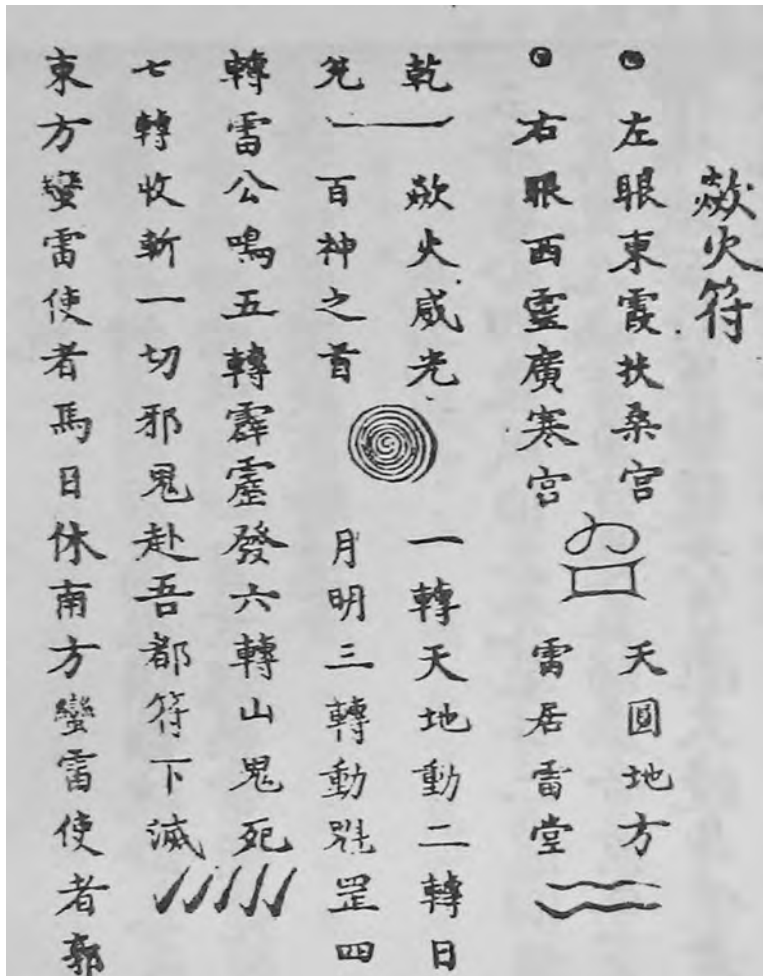 歘火符
左眼東霞扶桑宫 天圓地方
右眼西靈廣寒宫 雷居雷堂
乾 欻火威光 一轉天地動二轉日
兊 百神之首 月明三轉動魁罡四
轉雷公鳴五轉霹靂發六轉山鬼死
七轉收斬一切邪鬼赴吾都符下滅
東方蠻雷使者馬日休南方蠻雷使者郭